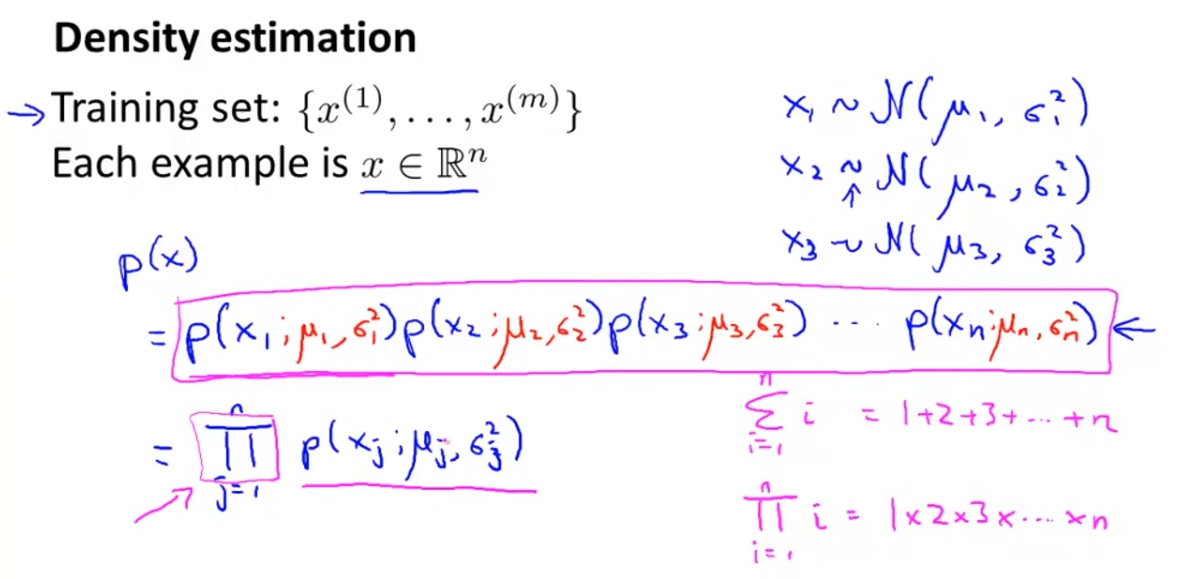 Density estimation
→ Training set: {x^(1), . . . , x^(m)}
Each example is x ∈ ℝⁿ
x₁ ~ N(μ₁, σ₁²)
x₂ ~ N(μ₂, σ₂²)
↑
x₃ ~ N(μ₃, σ₃²)
p(x)
= p(x₁; μ₁, σ₁²) p(x₂; μ₂, σ₂²) p(x₃; μ₃, σ₃²) ··· p(xₙ; μₙ, σₙ²) ←
= ∏_{j=1}^{n} p(xⱼ; μⱼ, σⱼ²)
∑_{i=1}^{n} i = 1+2+3+ ··· +n
∏_{i=1}^{n} i = 1×2×3× ··· ×n